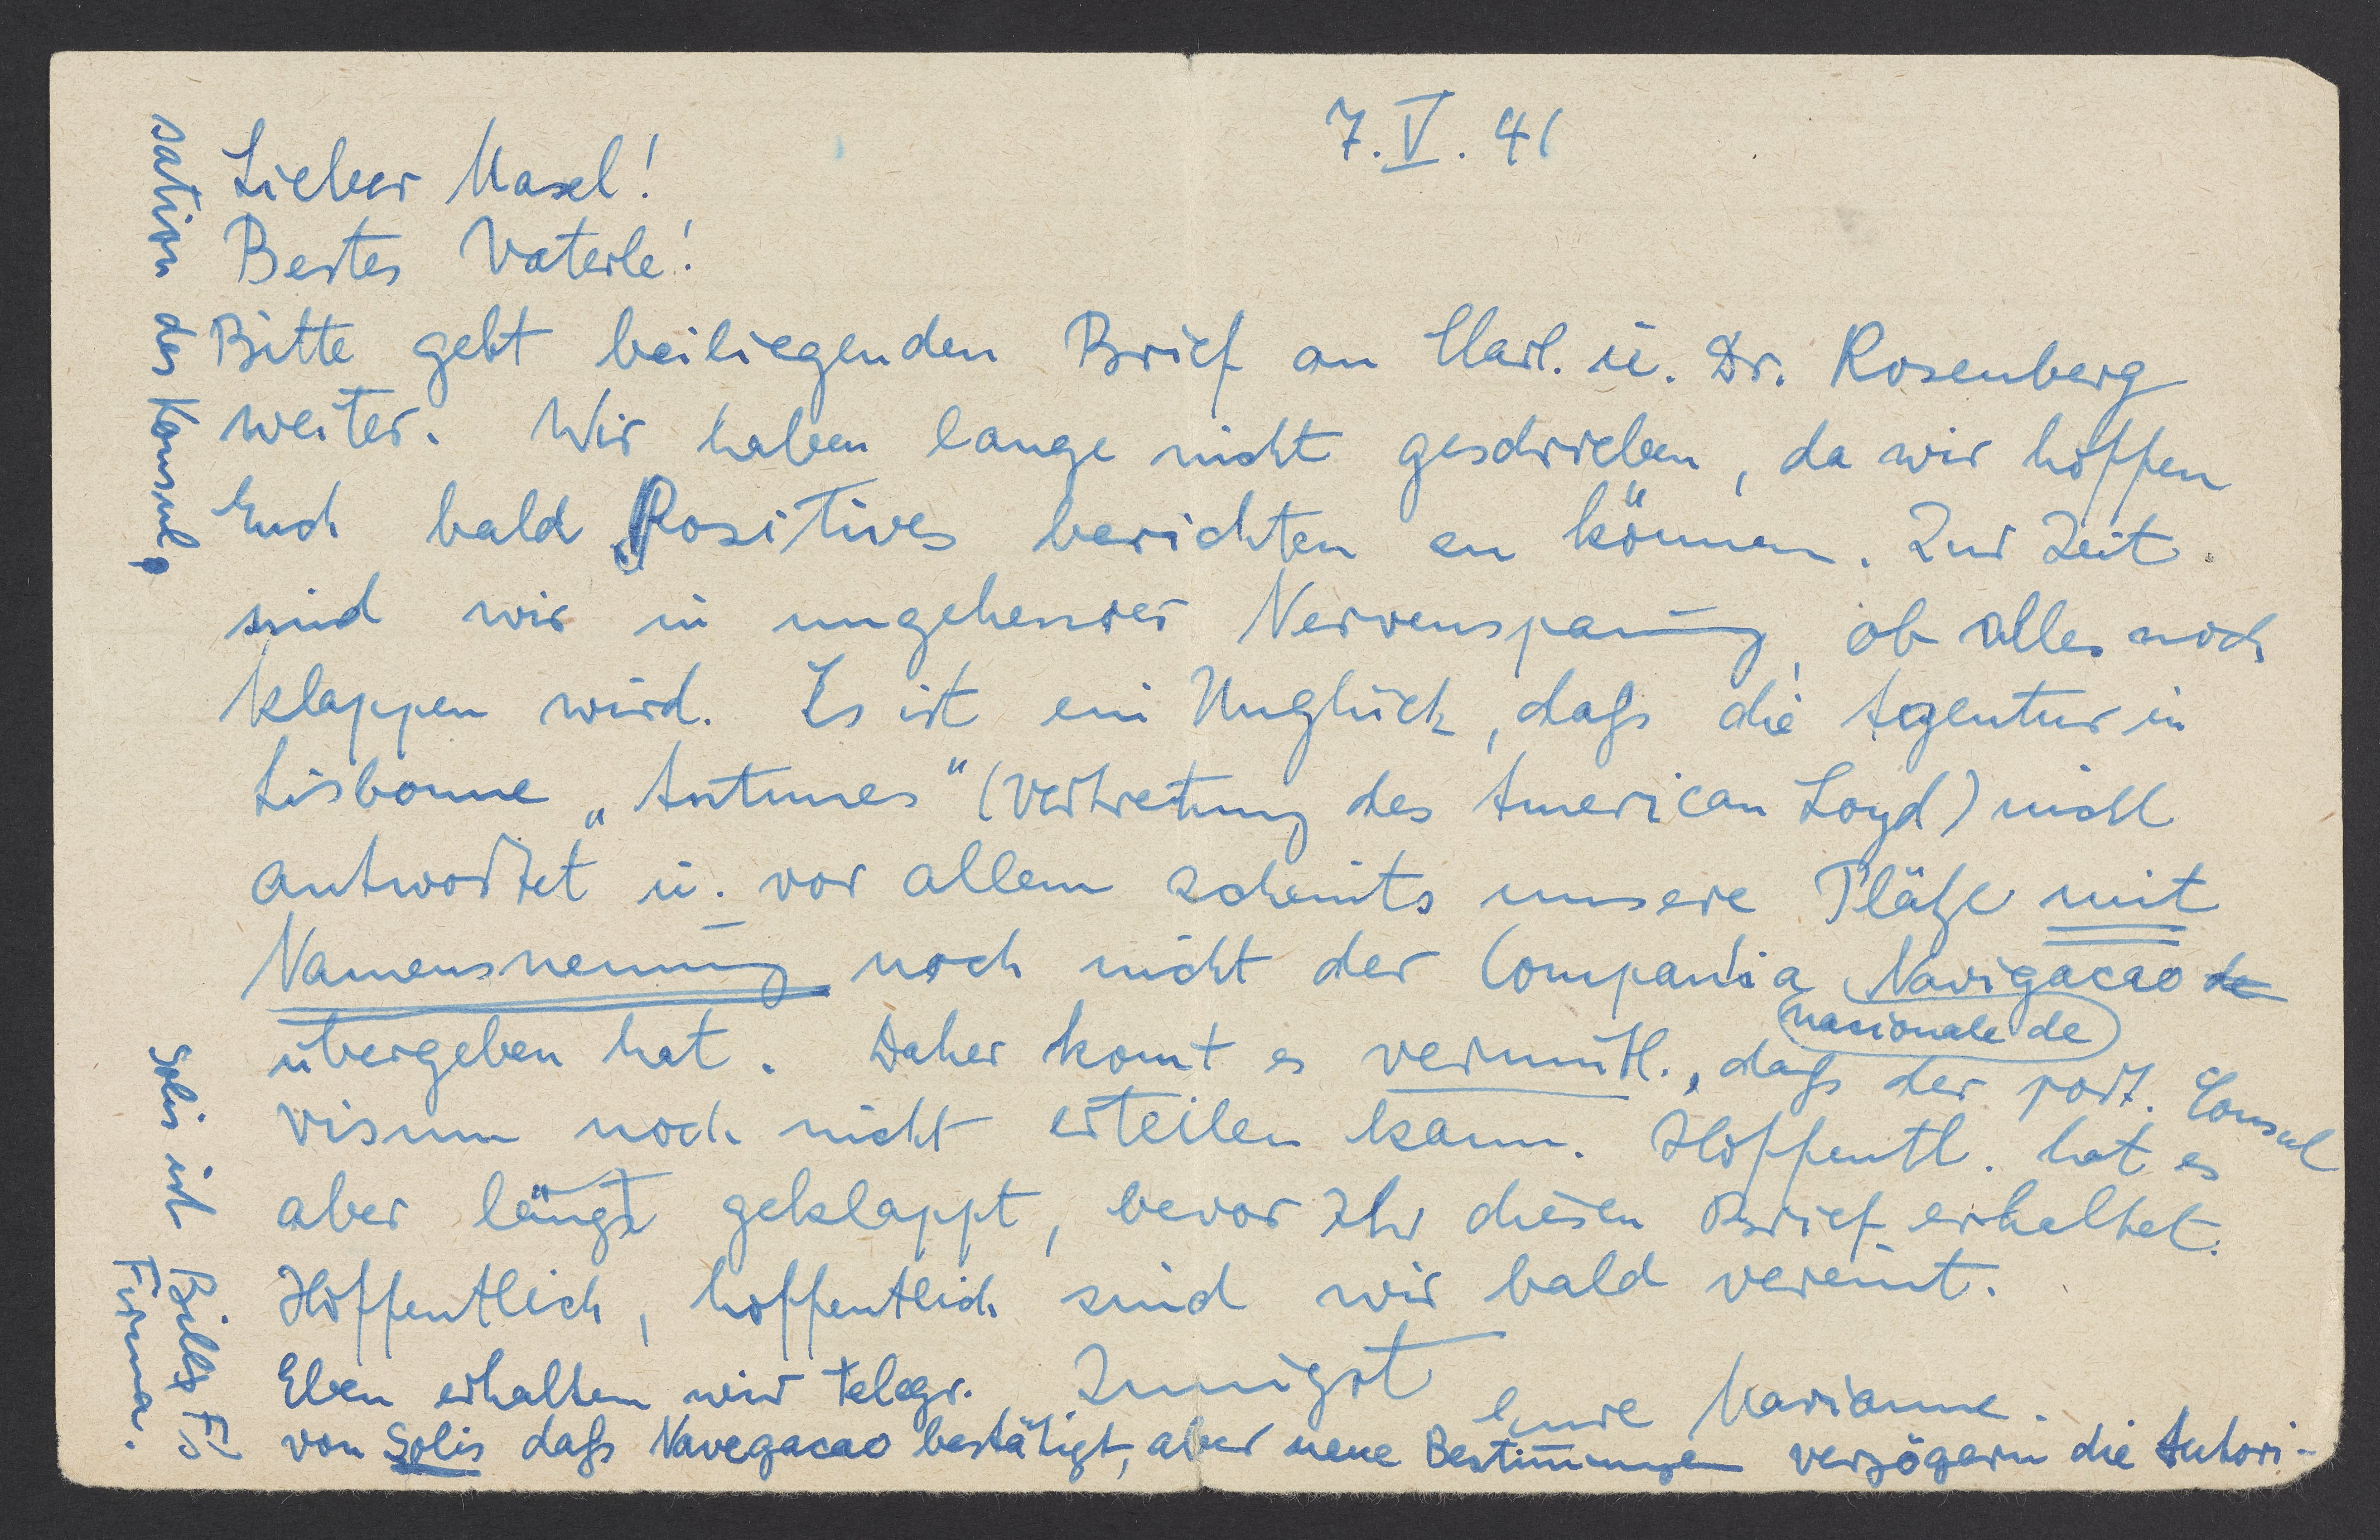 7.V.41
Lieber Maxel!
Bestes Vaterle!
Bitte gebt beiliegenden Brief an Carl. u. Dr. Rosenberg
weiter. Wir haben lange nicht geschrieben, da wir hoffen
Euch bald Positives berichten zu können. Zur Zeit
sind wir in ungeheurer Nervenspan̄ung, ob alles noch
klappen wird. Es ist ein Unglück, dass die Agentur in
Lisbonne „Antunes“ (Vertretung des American Loyd) nicht
antwortet u. vor allem scheints unsere Plätze mit
Namensnen̄ung noch nicht der Compania Navigacao de
nacionale de
übergeben hat. Daher kom̄t es vermutl., dass der port. Consul
visum noch nicht erteilen kann. Hoffentl. hat es
aber längst geklappt, bevor Ihr diesen Brief erhaltet.
Hoffentlich, hoffentlich sind wir bald vereint.
Innigst
Eure Marianne.
Eben erhalten wir telegr.
von Solis dass Navegacao bestätigt, aber neue Bestim̄ungen verzögern die Autori-
sation des Konsul,
Solis ist Bills
Firma.